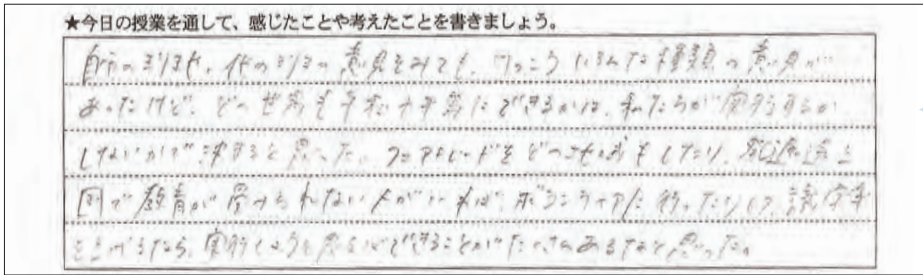 ★今日の授業を通して、感じたことや考えたことを書きましょう。
自分の班も、他の班の意見をみても、けっこういろんな種類の意見が
あったけど、どの世界も平和や平等にできるかは、私たちが実行するか
しないかで決まると思った。フェアトレードをどの地域もしたり、発展途上
国で教育が受けられない人がいれば、ボランティアに行ったりして、識字率
を上げるなら、実行しようと思えばできることがたくさんあるなと思った。